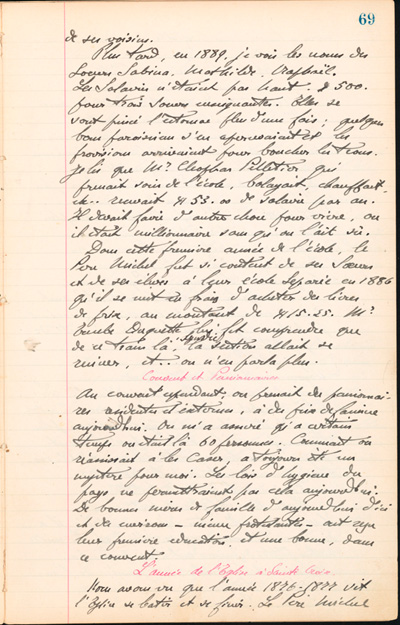 69
de ses voisins.
Plus tard, en 1889, je vois les noms des
Soeurs Sabina, Mathilde, Raphaël.
Les Salaires n'étaient pas haut. $500.
pour trois Soeurs enseignantes. Elles se
sont pincé l'estomac plus d'une fois; quelques
bons paroissiens s'en apercevaient et les
provisions arrivaient pour boucher les trous.
Je lis que Mr Cleophas Pelletier, qui
prenait soin de l'école, balayait, chauffait,
etc.. recevait $53.00 de salaire par an.
Il devait faire d'autre chose pour vivre, ou
il était millionnaire sans qu'on l'ait su.
Dans cette première année de l'école, le
Père Michel fut si content de ses Soeurs
et de ses élèves à leur école séparée en 1886
qu'il se mit en frais d'acheter des livres
de prix, au montant de $15.25. Mr
Duquette lui fit comprendre que
de ce train là, la section allait se
ruiner, et... on n'en parla plus.
Couvent et Pensionnaires
Au couvent cependant, on prenait des pensionnai-
res residentes et externes, à des prix de famine
aujourd'hui. On m'a assuré qu'a certains
temps on était là 60 personnes. Comment on
réussissait à les caser, a toujours été un
mystère pour moi. Les lois d'hygiene du
pays, ne permettraient pas cela aujourd'hui.
De bonnes mères de famille d'aujourd'hui d'ici
et des environs - même protestantes - ont reçu
leur première education, et une bonne, dans
ce couvent.
L'année de l'Eglise à Sainte Croix
Nous avons vu que l'année 1876-1877 vit
l'Eglise se batir et se finir. Le Père Michel